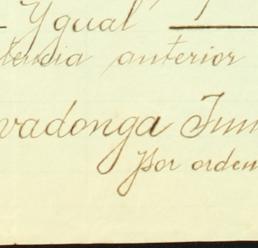 Ygual
tencia anterior
vadonga Jun
Por orden